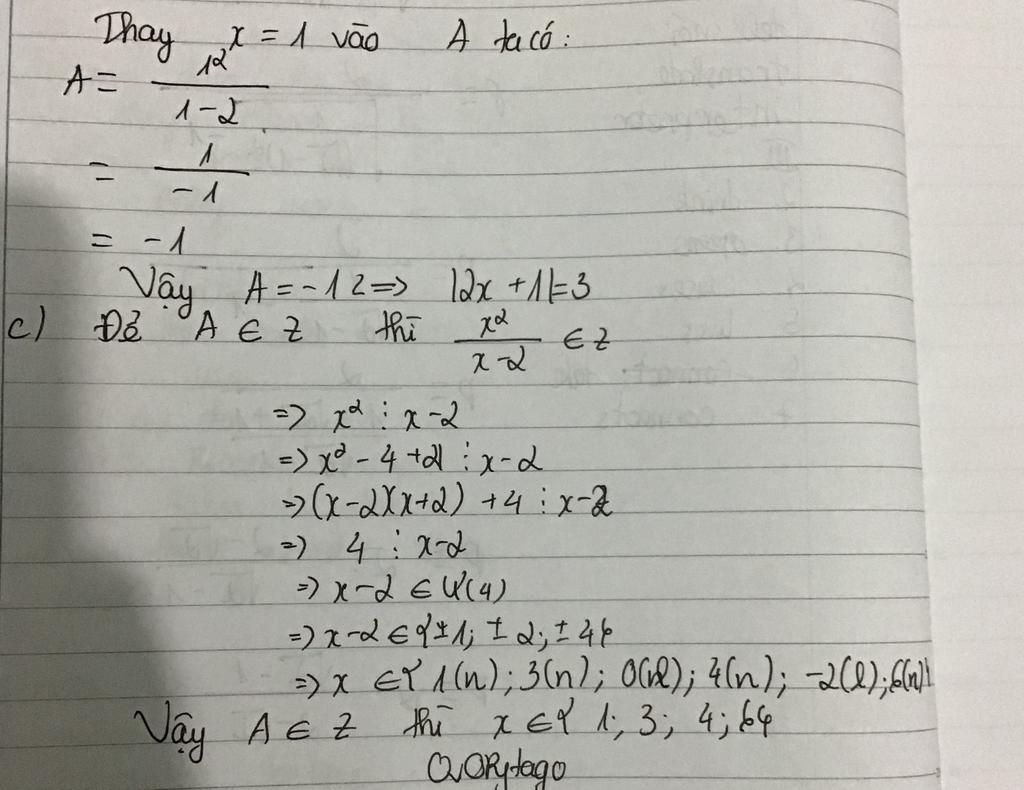 Thay x = 1 vào A ta có:
A = 1² / (1 - 2)
= 1 / (-1)
= -1
Vậy A = -1 2=> |2x + 1| = 3
c) Để A ∈ Z thì x² / (x - 2) ∈ Z
=> x² ⋮ x - 2
=> x² - 4 + 4 ⋮ x - 2
=> (x - 2)(x + 2) + 4 ⋮ x - 2
=> 4 ⋮ x - 2
=> x - 2 ∈ Ư(4)
=> x - 2 ∈ {± 1; ± 2; ± 4}
=> x ∈ { 1(n); 3(n); 0(l); 4(n); -2(l); 6(n)}
Vậy A ∈ Z thì x ∈ { 1; 3; 4; 6}